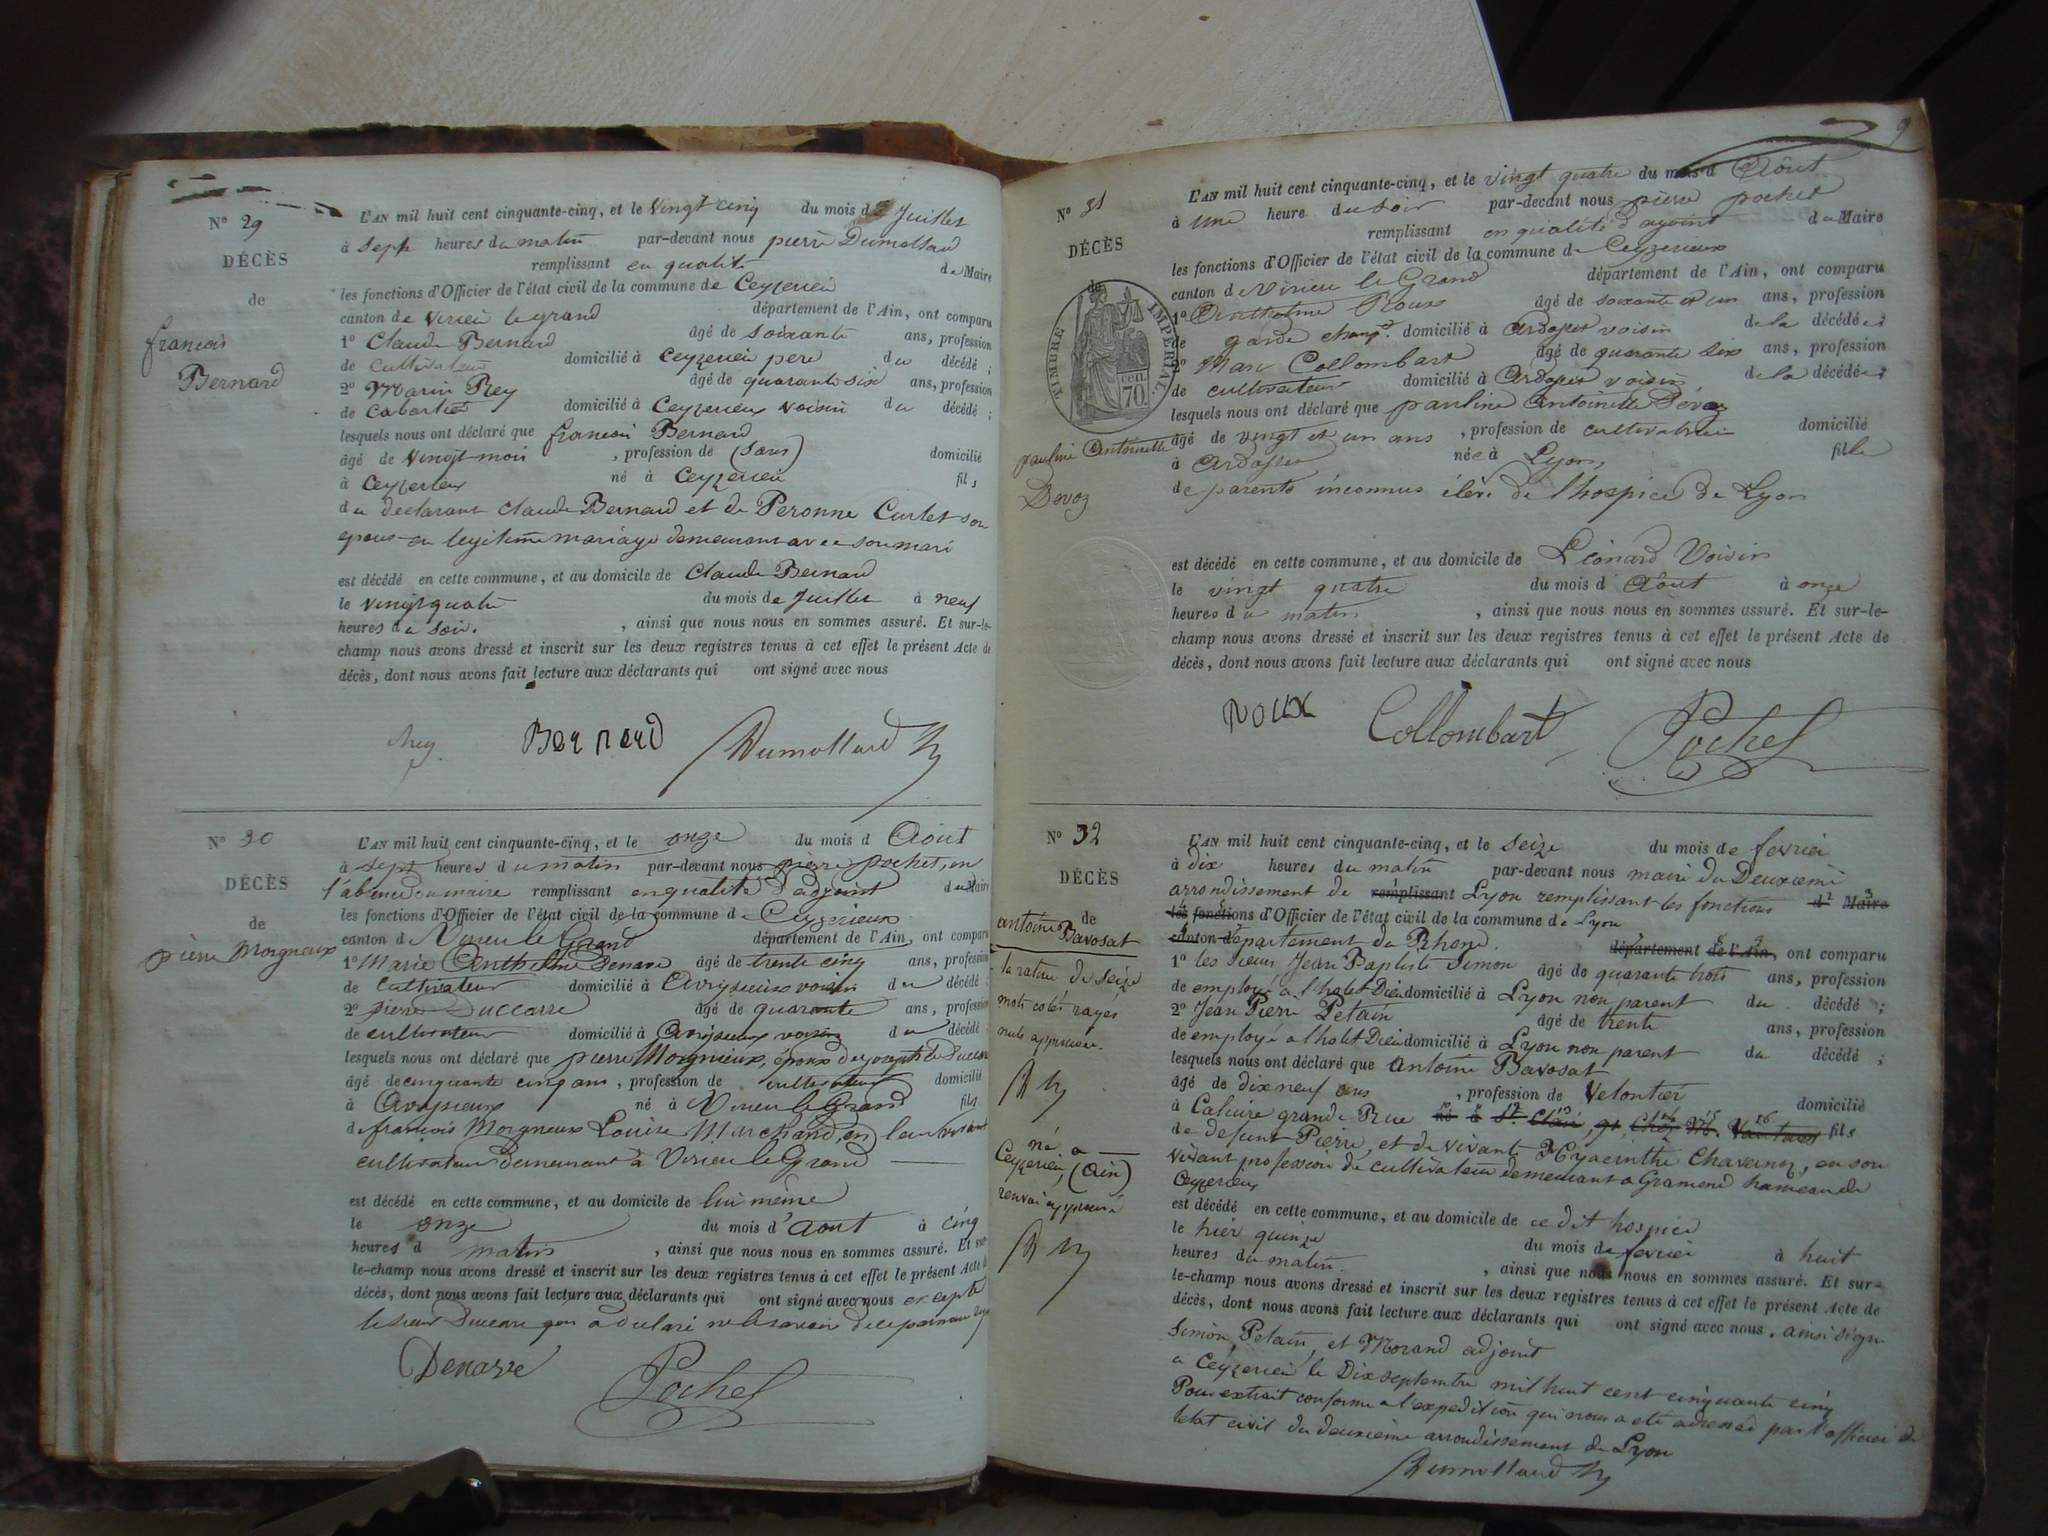 Nº 29
DÉCÈS
de
francois
Bernard
L'AN mil huit cent cinquante-cinq, et le vingt cinq du mois de Juillet
à sept heures du matin par-devant nous pierre Dumollard
remplissant en qualité de Maire
les fonctions d'Officier de l'état civil de la commune de Ceyzerieu
canton de virieu le grand département de l'Ain, ont comparu
1º Claude Bernard âgé de soixante ans, profession
de cultivateur domicilié à Ceyzerieu pere du décédé ;
2º Marin Rey âgé de quarante six ans, profession
de Cabartié domicilié à Ceyzerieux voisin du décédé ;
lesquels nous ont déclaré que francois Bernard
âgé de vingt mois , profession de (sans) domicilié
à Ceyzerieux né à Ceyzerieu fils
du declarant Claude Bernard et de Peronne Curtet son
epouse en legitime mariage demeurant avec son mari
est décédé en cette commune, et au domicile de Claude Bernard
le vingt quatre du mois de Juillet à neuf
heures du soir. , ainsi que nous nous en sommes assuré. Et sur-le-
champ nous avons dressé et inscrit sur les deux registres tenus à cet effet le présent Acte de
décès, dont nous avons fait lecture aux déclarants qui ont signé avec nous
Rey Bernard Dumollard
Nº 30
DÉCÈS
de
pierre Morgneux
L'AN mil huit cent cinquante-cinq, et le onze du mois d Août
à sept heures du matin par-devant nous pierre pochet, en
l'absence du maire remplissant en qualité d'adjoint du Maire
les fonctions d'Officier de l'état civil de la commune de Ceyzerieux
canton d Virieu le Grand département de l'Ain, ont comparu
1º Marie Anthelme Denare âgé de trente cinq ans, profession
de cultivateur domicilié à Avrysieux voisin du décédé ;
2º pierre Duccarre âgé de quarante ans, profession
de cultivateur domicilié à Avrysieux voisin du décédé
lesquels nous ont déclaré que pierre Morgnieux, époux de josephte Ducarre
âgé de cinquante cinq ans , profession de cultivateur domicilié
à Avrysieux né à Virieu le Grand fils
de françois Morgneux Louise Marchand, en leur vivant
cultivateur demeurant à Virieu le Grand
est décédé en cette commune, et au domicile de lui même
le onze du mois d'aout à cinq
heures d matin , ainsi que nous nous en sommes assuré. Et sur-
le-champ nous avons dressé et inscrit sur les deux registres tenus à cet effet le présent Acte de
décès, dont nous avons fait lecture aux déclarants qui ont signé avec nous excepté
le sieur Ducarre qui a declaré ne le savoir
Denarre Pochet
9
Nº 31
DÉCÈS
de
TIMBRE IMPERIAL
70 cen.
pauline Antoinette
Devoz
L'AN mil huit cent cinquante-cinq, et le vingt quatre du mois d Août
à une heure du soir par-devant nous pierre pochet
remplissant en qualité d'ajoint du Maire
les fonctions d'Officier de l'état civil de la commune de Ceyzerieux
canton d Virieu le Grand département de l'Ain, ont comparu
1º Anthelme Roux âgé de soixante et un ans, profession
de garde champ. domicilié à Ardosset voisin de la décédée
2º Marc Collombart âgé de quarante six ans, profession
de cultivateur domicilié à Ardosset voisin de la décédée
lesquels nous ont déclaré que pauline Antoinette Devoz
âgé de vingt et un ans , profession de cultivatrice domicilié
à Ardosset née à Lyon, fille
de parents inconnus élève de l'hospice de Lyon
est décédé en cette commune, et au domicile de Léonard Voisin
le vingt quatre du mois d Août à onze
heures du matin , ainsi que nous nous en sommes assuré. Et sur-le-
champ nous avons dressé et inscrit sur les deux registres tenus à cet effet le présent Acte de
décès, dont nous avons fait lecture aux déclarants qui ont signé avec nous
Roux Collombart Pochet
Nº 32
DÉCÈS
de
antoine Bavosat
la rature de seize
mots cotés rayés
nuls approuvée.
né a
Ceyzerieu, (Ain)
renvoi approuvé
L'AN mil huit cent cinquante-cinq, et le seize du mois de fevrier
à dix heures du matin par-devant nous maire du Deuxieme
arrondissement de remplissant Lyon remplissant les fonctions de Maire
les fonctions d'Officier de l'état civil de la commune de Lyon
canton département du Rhone. département de l'Ain, ont comparu
1º les sieurs Jean Baptiste Simon âgé de quarante trois ans, profession
de employé a l'hotel Dieu domicilié à Lyon non parent du décédé ;
2º Jean Pierre Petain âgé de trente ans, profession
de employé a l'hotel Dieu domicilié à Lyon non parent du décédé ;
lesquels nous ont déclaré que antoine Bavosat
âgé de dix neuf ans , profession de Veloutier domicilié
à Caluire grande Rue né à St Clair, fils
de defunt Pierre, et de vivante Hyacinthe Chavanu, en son
vivant profession de cultivateur demeurant a Gramend hameau de
Ceyzerieux
est décédé en cette commune, et au domicile de ce dit hospice
le hier quinze du mois de fevrier à huit
heures du matin. , ainsi que nous nous en sommes assuré. Et sur-
le-champ nous avons dressé et inscrit sur les deux registres tenus à cet effet le présent Acte de
décès, dont nous avons fait lecture aux déclarants qui ont signé avec nous. ainsi signé
Simon, Petain, et Morand adjoint
a Ceyzerieu le Dix septembre mil huit cent cinquante cinq
Pour extrait conforme a l'expedition qui nous a été adressée par l'officier de
letat civil du deuxième arrondissement de Lyon
Dumollard